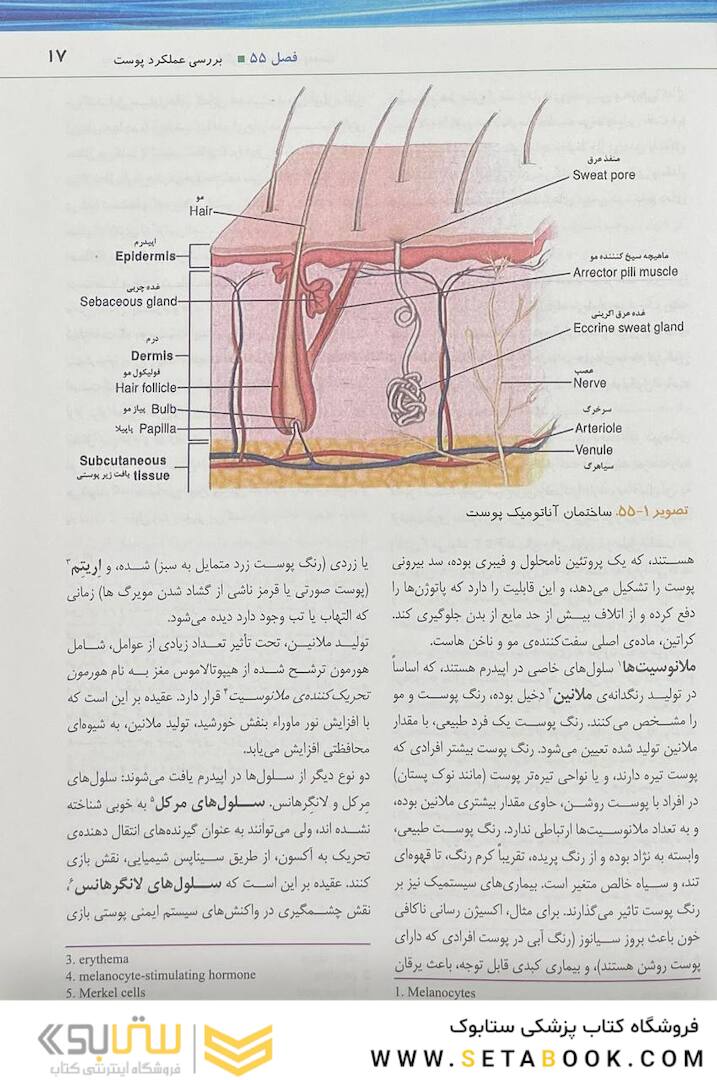 فصل ۵۵ ■ بررسی عملکرد پوست
۱۷
منفذ عرق
Sweat pore
مو
Hair
اپیدرم
Epidermis
ماهیچه سیخ کننده مو
Arrector pili muscle
غده چربی
Sebaceous gland
غده عرق اکرینی
Eccrine sweat gland
درم
Dermis
فولیکول مو
Hair follicle
عصب
Nerve
پیاز مو Bulb
پاپیلا Papilla
سرخرگ
Arteriole
Venule
سیاهرگ
Subcutaneous
بافت زیر پوستی tissue
تصویر ۱-۵۵. ساختمان آناتومیک پوست
هستند، که یک پروتئین نامحلول و فیبری بوده، سد بیرونی
پوست را تشکیل می‌دهد، و این قابلیت را دارد که پاتوژن‌ها را
دفع کرده و از اتلاف بیش از حد مایع از بدن جلوگیری کند.
کراتین، ماده‌ی اصلی سفت‌کننده‌ی مو و ناخن هاست.
ملانوسیت‌ها۱ سلول‌های خاصی در اپیدرم هستند، که اساساً
در تولید رنگدانه‌ی ملانین۲ دخیل بوده، رنگ پوست و مو
را مشخص می‌کنند. رنگ پوست یک فرد طبیعی، با مقدار
ملانین تولید شده تعیین می‌شود. رنگ پوست بیشتر افرادی که
پوست تیره دارند، و یا نواحی تیره‌تر پوست (مانند نوک پستان)
در افراد با پوست روشن، حاوی مقدار بیشتری ملانین بوده،
و به تعداد ملانوسیت‌ها ارتباطی ندارد. رنگ پوست طبیعی،
وابسته به نژاد بوده و از رنگ پریده، تقریباً کرم رنگ، تا قهوه‌ای
تند، و سیاه خالص متغیر است. بیماری‌های سیستمیک نیز بر
رنگ پوست تاثیر می‌گذارند. برای مثال، اکسیژن رسانی ناکافی
خون باعث بروز سیانوز (رنگ آبی در پوست افرادی که دارای
پوست روشن هستند)، و بیماری کبدی قابل توجه، باعث یرقان
1. Melanocytes
یا زردی (رنگ پوست زرد متمایل به سبز) شده، و اِریتِم۳
(پوست صورتی یا قرمز ناشی از گشاد شدن مویرگ ها) زمانی
که التهاب یا تب وجود دارد دیده می‌شود.
تولید ملانین، تحت تأثیر تعداد زیادی از عوامل، شامل
هورمون ترشح شده از هیپوتالاموس مغز به نام هورمون
تحریک‌کننده‌ی ملانوسیت۴ قرار دارد. عقیده بر این است که
با افزایش نور ماوراء بنفش خورشید، تولید ملانین، به شیوه‌ای
محافظتی افزایش می‌یابد.
دو نوع دیگر از سلول‌ها در اپیدرم یافت می‌شوند: سلول‌های
مِرکل و لانگرهانس. سلول‌های مرکل۵ به خوبی شناخته
نشده اند، ولی می‌توانند به عنوان گیرنده‌های انتقال دهنده‌ی
تحریک به آکسون، از طریق سیناپس شیمیایی، نقش بازی
کنند. عقیده بر این است که سلول‌های لانگرهانس۶،
نقش چشمگیری در واکنش‌های سیستم ایمنی پوستی بازی
3. erythema
4. melanocyte-stimulating hormone
5. Merkel cells
فروشگاه کتاب پزشکی ستابوک
WWW.SETABOOK.COM
ستابوک
فروشگاه اینترنتی کتاب